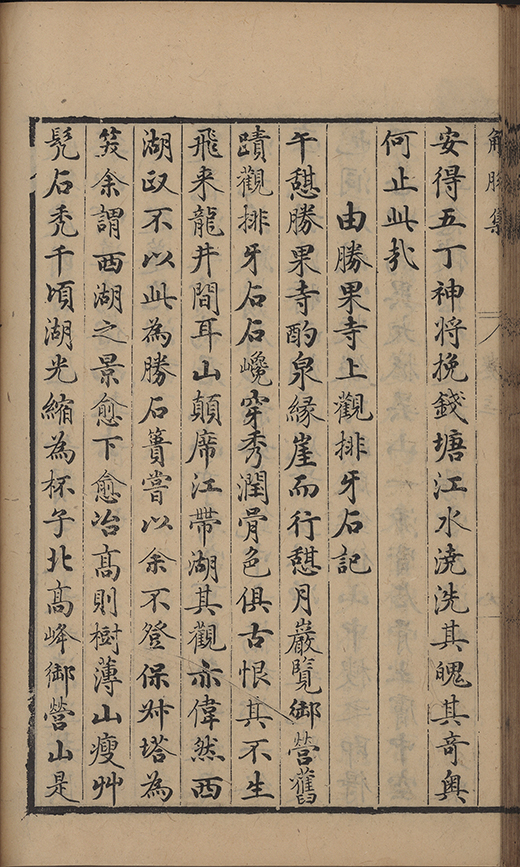 解脫集
安得五丁神将挽錢塘江水澆洗其其奇奥
何止此哉
由勝果寺上觀排牙石記
午憇勝果寺酌泉緣崖而行憇月巖覽御營舊
蹟觀排牙石石巉穿秀潤骨色俱古恨其不生
飛来龍井間耳山顛席江帶湖其觀亦偉然西
湖政不以此為勝石簣嘗以余不登保叔塔為
笑余謂西湖之景愈下愈冶髙則樹薄山瘦艸
髠石秃千頃湖光縮為杯子北髙峰御營山是